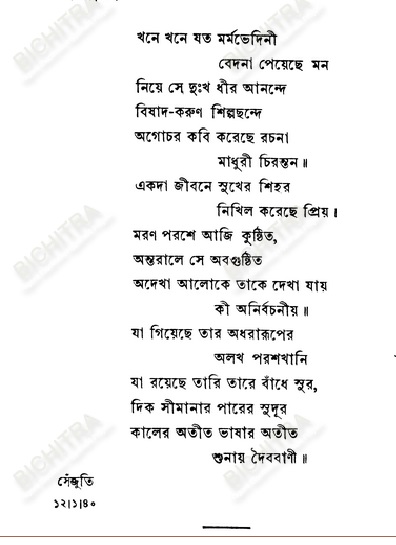 খনে খনে যত মর্মভেদিনী
বেদনা পেয়েছে মন
নিয়ে সে দুঃখ ধীর আনন্দে
বিষাদ-করুণ শিল্পছন্দে
অগোচর কবি করেছে রচনা
মাধুরী চিরন্তন॥
একদা জীবনে সুখের শিহর
নিখিল করেছে প্রিয়।
মরণ পরশে আজি কুণ্ঠিত,
অন্তরালে সে অবগুণ্ঠিত
অদেখা আলোকে তাকে দেখা যায়
কী অনির্বচনীয়॥
যা গিয়েছে তার অধরারূপের
অলখ পরশখানি
যা রয়েছে তারি তারে বাঁধে সুর,
দিক সীমানার পারের সুদূর
কালের অতীত ভাষার অতীত
শুনায় দৈববাণী॥
সেঁজুতি
১২।১।৪০
BICHITRA
BICHITRA
BICHITRA
BICHITRA
BICHITRA
BICHITRA